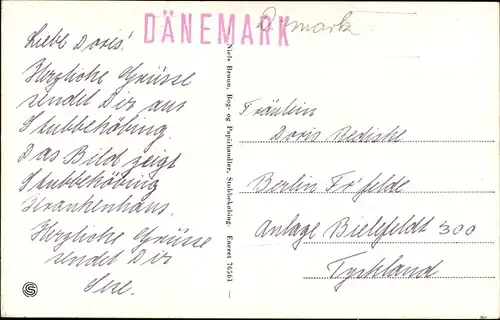 DÄNEMARK
Liebe Doris!
Herzliche Grüsse
sendet Dir aus
Stubbeköbing.
Das Bild zeigt
Stubbeköbing
Krankenhaus.
Herzliche Grüsse
sendet Dir
Niels Bruun, Bog- og Papirhandler, Stubbekøbing. Eneret 76561
Fräulein
Doris
Berlin
Anlage Bielefeldt 300
Tyskland
S